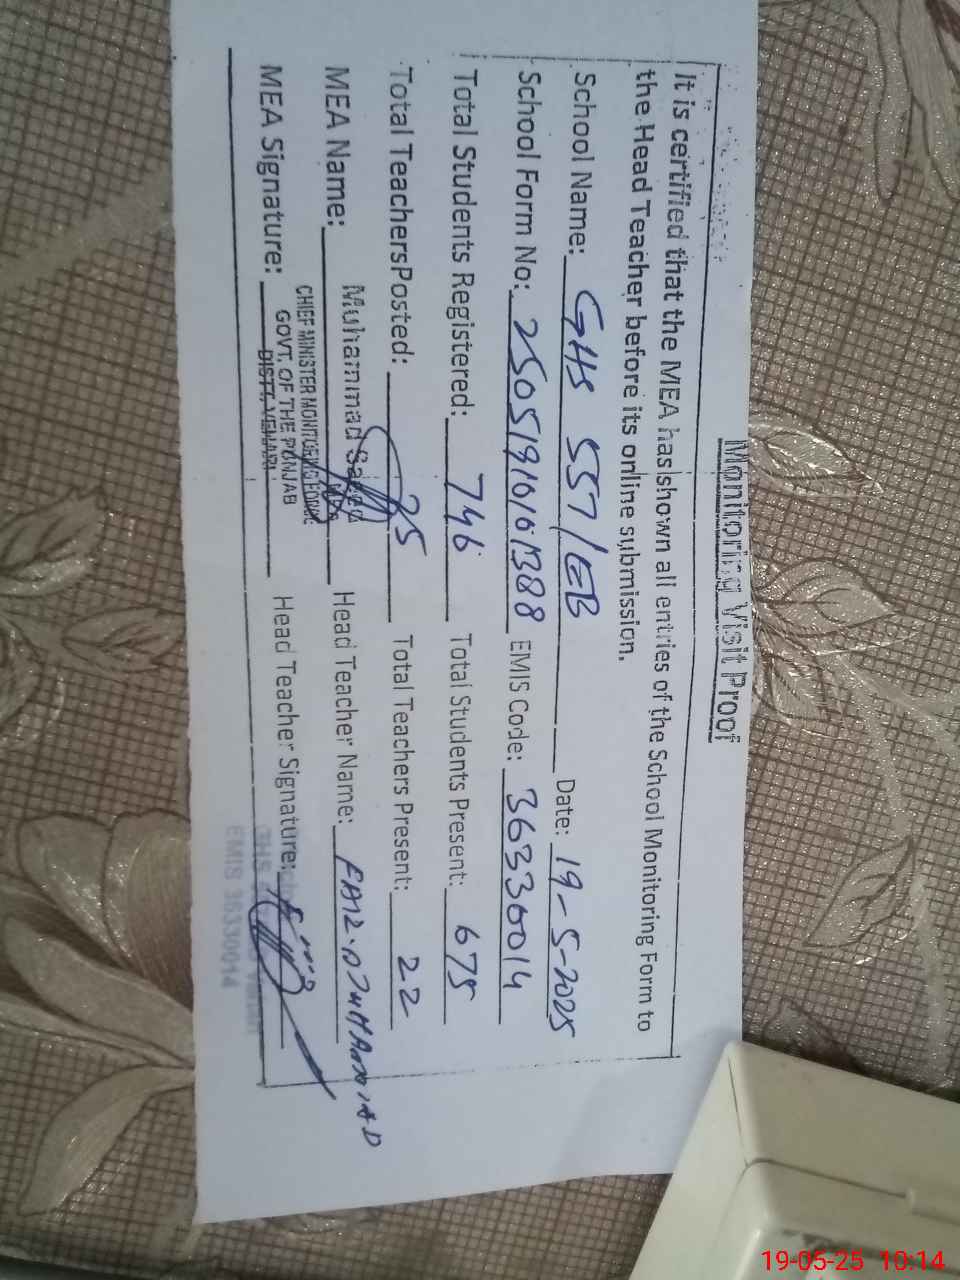 Monitoring Visit Proof
It is certified that the MEA has shown all entries of the School Monitoring Form to
the Head Teacher before its online submission.
School Name: GHS 557/EB Date: 19-5-2025
School Form No: EMIS Code: 36330014
Total Students Registered: 746 Total Students Present: 675
Total TeachersPosted: 25 Total Teachers Present: 22
MEA Name: Muhammad Head Teacher Name:
CHIEF MINISTER MONITORING FORCE
GOVT. OF THE PUNJAB
DISTT. VEHARI
MEA Signature: Head Teacher Signature:
GHS
EMIS 36330014
19-05-25 10:14